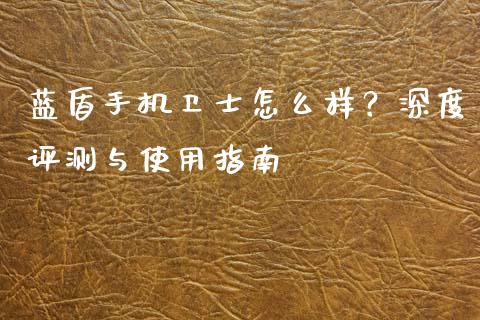 蓝盾手机卫士怎么样？深度
评测与使用指南